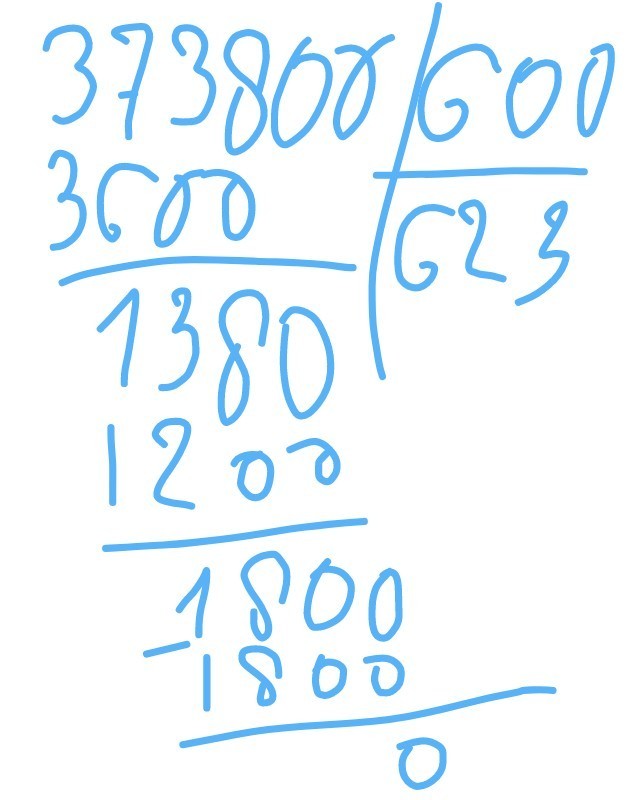 373800 600
3600 623
1380
1200
1800
-1800
0